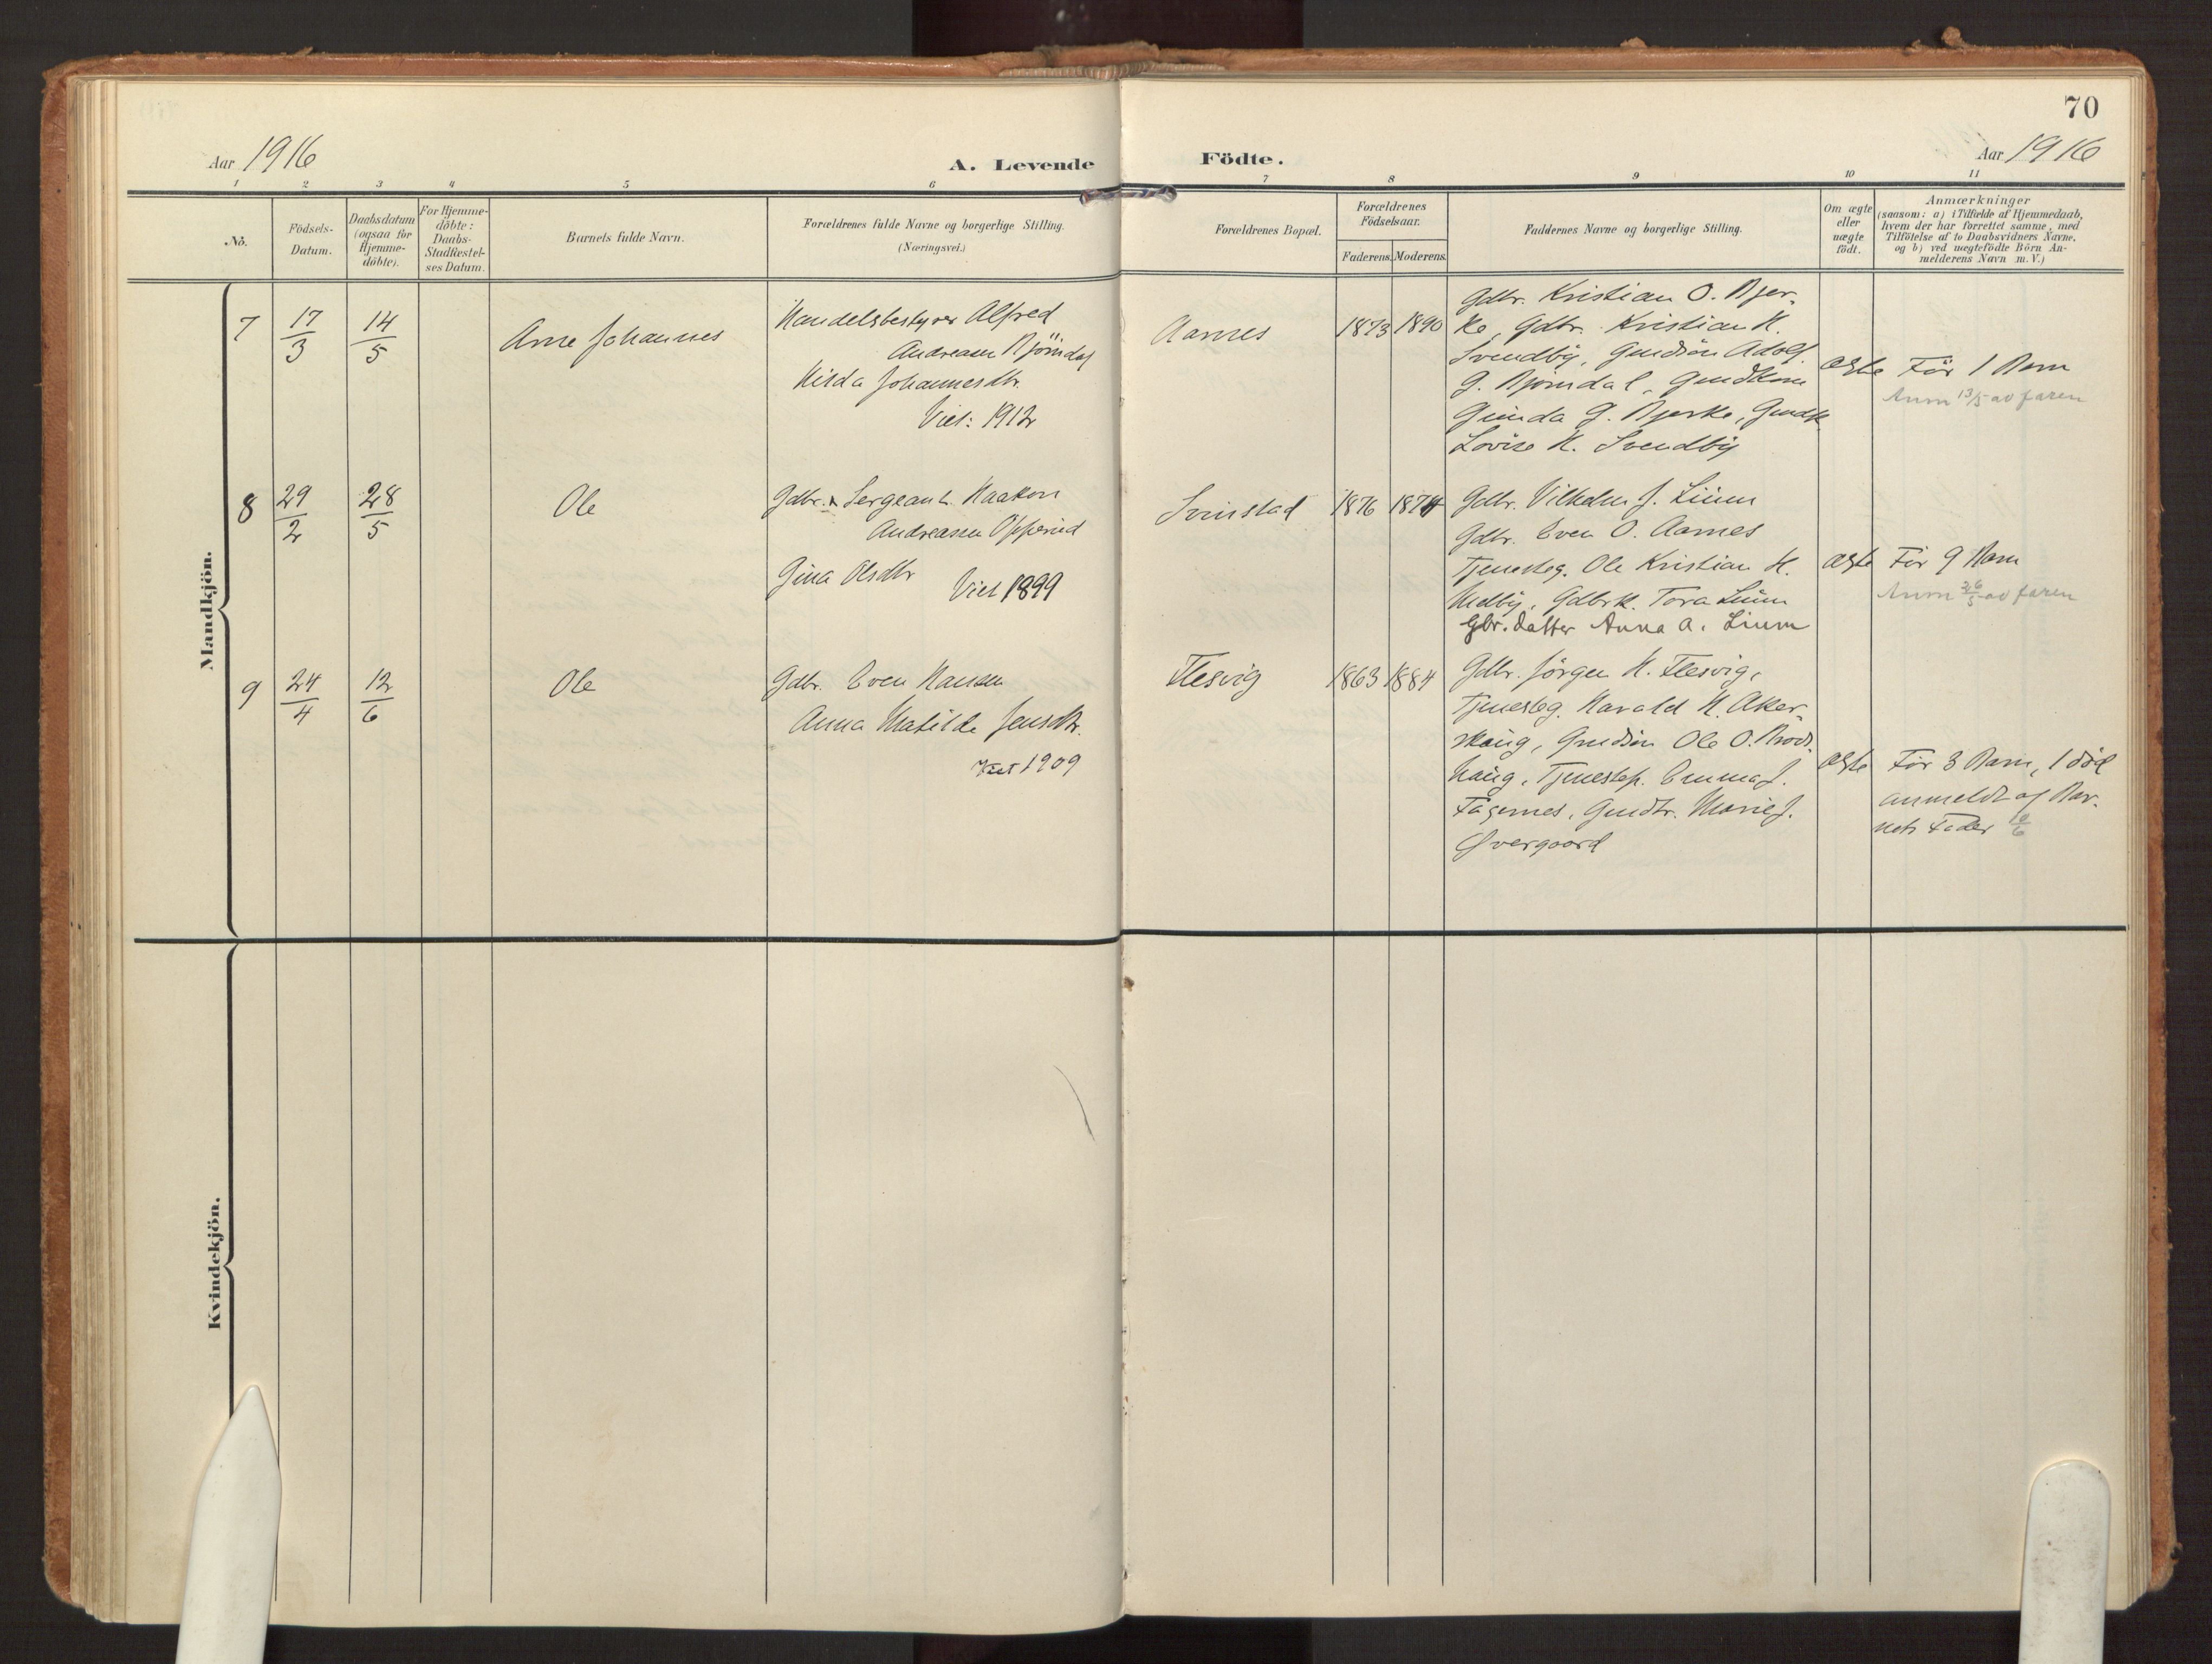 70
Aar 1916
A. Levende Födte.
Aar 1916
1 2 3 4 5 6 7 8 9 10 11
No.
Födsels-
Datum.
Daabsdatum
(ogsaa for
Hjemme-
döbte).
For Hjemme-
döbte:
Daabs-
Stadfæstel-
ses Datum.
Barnets fulde Navn.
Forældrenes fulde Navne og borgerlige Stilling.
(Næringsvei.)
Forældrenes Bopæl.
Forældrenes
Födselsaar.
Faderens. Moderens.
Faddernes Navne og borgerlige Stilling.
Om ægte
eller
uægte
födt.
Anmærkninger
(saasom: a) i Tilfælde af Hjemmedaab,
hvem der har forrettet samme, med
Tilföielse af to Daabsvidners Navne,
og b) ved uægtefödte Börn An-
melderens Navn m. V.)
Mandkjön.
7
17/3
14/5
Arne Johannes
Handelsbestyrer Alfred
Andreasen Björndal
Hilda Johannesdtr.
Viet: 1912
Aarnes
1873 1890
Gdbr. Kristian O. Bjer-
ke, Gdbr. Kristian H.
Svendby, Gmdsön Adolf
G. Bjørndal, Gmdkone
Gunda G. Bjerke, Gmdk
Lovise K. Svendby
ægte
För 1 Barn
Anm 13/5 av faren
8
29/2
28/5
Ole
Gdbr. & Sergeant Haakon
Andreasen Opperud
Gina Olsdtr
Viet 1899
Svinstad
1876 1874
Gdbr. Vilhelm J. Lium
Gdbr. Even O. Aarnes
Tjenesteg. Ole Kristian H.
Melby, Gdbrk. Tora Lium
Gbr. datter Anna A. Lium
ægte
För 9 Barn
Anm 26/5 av faren
9
24/4
12/6
Ole
Gdbr. Even Hansen
Anna Matilde Jensdtr.
Viet 1909
Flesvig
1863 1884
Gdbr. Jörgen H. Flesvig,
Tjenesteg. Harald H. Aker-
skaug, Gmdsön Ole O. Brods-
haug, Tjenestep. Emma J.
Fagernes, Gmdtr. Marie J.
Övergaard
ægte
För 3 Barn, 1 död
anmeldt af Bar-
nets Fader 10/6
Kvindekjön.